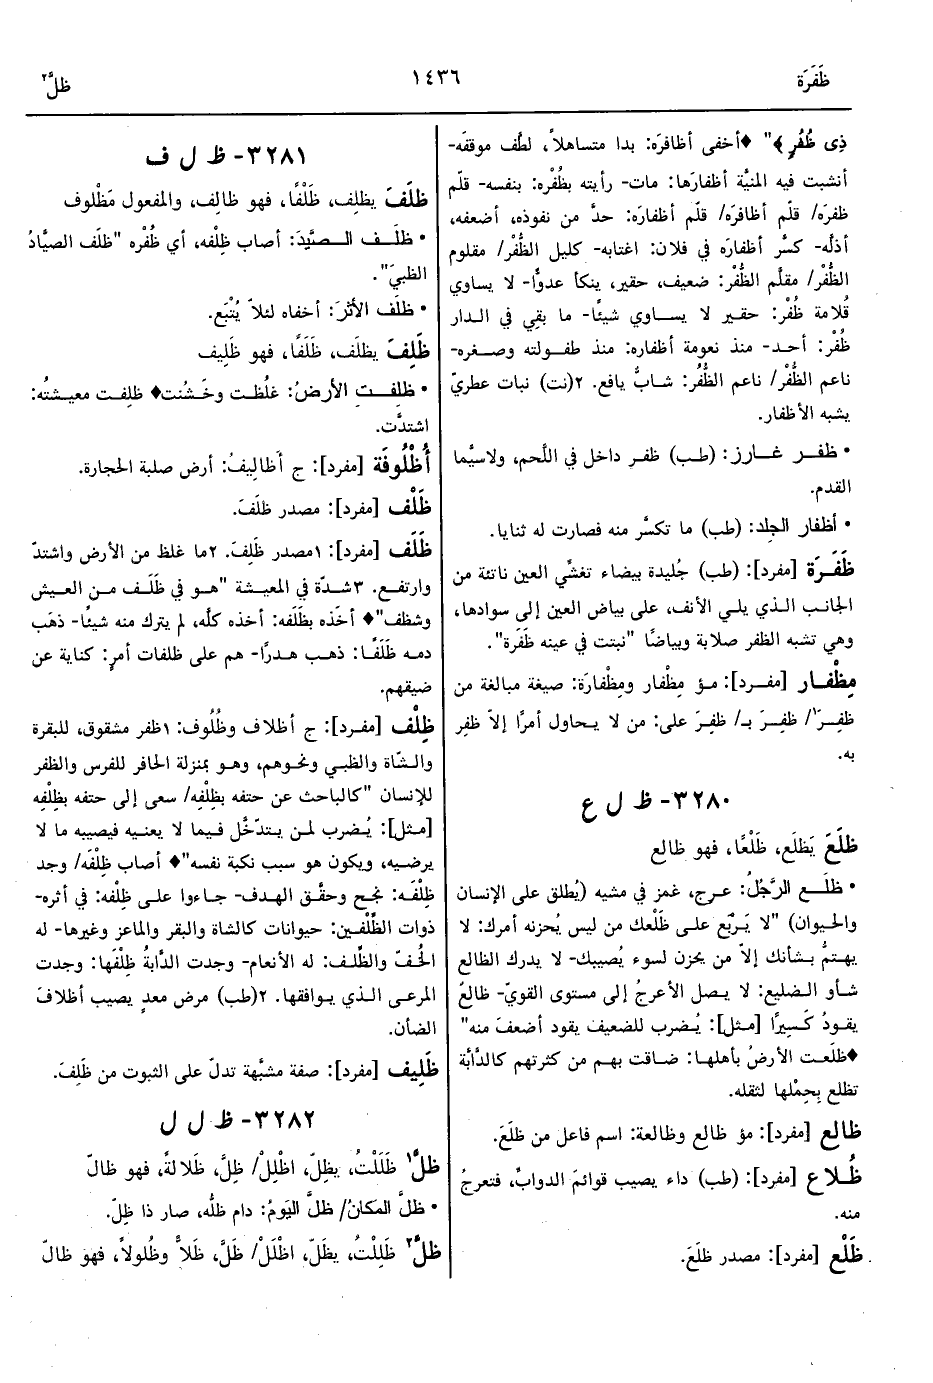 ظَفَرَة
١٤٣٦
ظلَّ٢
ذِى ظُفُرٍ﴾" ♦أخفى أظافرَه: بدا متساهلاً، لطَّف موقفَه-
أنشبت فيه المنيَّة أظفارَها: مات- رأيته بظُفْره: بنفسه- قلّم
ظفرَه/ قلّم أظافرَه/ قلّم أظفارَه: حدَّ من نفوذه، أضعفه،
أذلّه- كسَّر أظفارَه في فلان: اغتابه- كليل الظُّفْر/ مقلوم
الظُّفْر/ مقلَّم الظُّفْر: ضعيف، حقير، ينكأ عدوًّا- لا يساوي
قُلامة ظُفْر: حقير لا يساوي شيئًا- ما بقي في الدار
ظُفْر: أحد- منذ نعومة أظفاره: منذ طفولته وصغره-
ناعم الظُّفْر/ ناعم الظُّفُر: شابٌّ يافع. ٢(نت) نبات عطريّ
يشبه الأظفار.
• ظفر غارز: (طب) ظفر داخل في اللَّحم، ولاسيَّما
القدم.
• أظفار الجلد: (طب) ما تكسَّر منه فصارت له ثنايا.
ظَفَرَة [مفرد]: (طب) جُليدة بيضاء تغشِّي العين ناتئة من
الجانب الذي يلي الأنف، على بياض العين إلى سوادها،
وهي تشبه الظفر صلابة وبياضًا "نبتت في عينه ظَفَرة".
مِظْفار [مفرد]: مؤ مِظْفار ومِظْفارَة: صيغة مبالغة من
ظفِرَ١/ ظفِرَ بـ/ ظفِرَ على: من لا يحاول أمرًا إلاّ ظفِر
به.
٣٢٨٠- ظ ل ع
ظلَعَ يَظلَع، ظَلْعًا، فهو ظالع
• ظلَع الرَّجُلُ: عرج، غمز في مشيه (يُطلق على الإنسان
والحيوان) "لا يَرْبَع على ظَلْعك من ليس يُحزنه أمرك: لا
يهتمُّ بشأنك إلاّ من يحزن لسوء يُصيبك- لا يدرك الظالع
شأو الضليع: لا يصل الأعرجُ إلى مستوى القويّ- ظالعٌ
يقودُ كَسِيرًا [مثل]: يُضرب للضعيف يقود أضعفَ منه"
♦ظلَعت الأرضُ بأهلها: ضاقت بهم من كثرتهم كالدَّابَّة
تظلع بِحِمْلها لثقله.
ظالع [مفرد]: مؤ ظالع وظالعة: اسم فاعل من ظلَعَ.
ظُلاع [مفرد]: (طب) داء يصيب قوائمَ الدوابّ، فتعرجُ
منه.
ظَلْع [مفرد]: مصدر ظلَعَ.
٣٢٨١- ظ ل ف
ظلَفَ يظلِف، ظَلْفًا، فهو ظالِف، والمفعول مَظْلوف
• ظلَف الصيَّدَ: أصاب ظِلْفه، أي ظُفْره "ظلَف الصيَّادُ
الظبيَ".
• ظلَف الأثرَ: أخفاه لئلاّ يُتْبَع.
ظلِفَ يظلَف، ظَلَفًا، فهو ظَلِيف
• ظلِفت الأرضُ: غلُظت وخَشُنت♦ ظلِفت معيشتُه:
اشتدَّت.
أُظْلُوفَة [مفرد]: ج أَظاليفُ: أرض صلبة الحجارة.
ظَلْف [مفرد]: مصدر ظلَفَ.
ظَلَف [مفرد]: ١مصدر ظلِفَ. ٢ما غلظ من الأرض واشتدّ
وارتفع. ٣شدّة في المعيشة "هو في ظَلَف من العيش
وشظف"♦ أخَذه بظَلَفه: أخذه كلَّه، لم يترك منه شيئًا- ذهَب
دمه ظَلَفًا: ذهب هدرًا- هم على ظلفات أمرٍ: كناية عن
ضيقهم.
ظِلْف [مفرد]: ج أظلاف وظُلُوف: ١ظفر مشقوق، للبقرة
والشَّاة والظبي ونحوهم، وهو بمنزلة الحافر للفرس والظفر
للإنسان "كالباحث عن حتفه بظِلْفِه/ سعى إلى حتفه بظِلْفِه
[مثل]: يُضرب لمن يتدخَّل فيما لا يعنيه فيصيبه ما لا
يرضيه، ويكون هو سبب نكبة نفسه"♦ أصاب ظِلْفَه/ وجد
ظِلْفَه: نجح وحقَّق الهدف- جاءوا على ظِلْفه: في أثره-
ذوات الظِّلْفين: حيوانات كالشاة والبقر والماعز وغيرها- له
الخُفّ والظِّلف: له الأنعام- وجدت الدَّابةُ ظِلْفَها: وجدت
المرعى الذي يوافقها. ٢(طب) مرض معدٍ يصيب أظلافَ
الضأن.
ظَلِيف [مفرد]: صفة مشبَّهة تدلّ على الثبوت من ظَلِفَ.
٣٢٨٢- ظ ل ل
ظلَّ١ ظَلَلْتُ، يظِلّ، اظْلِلْ/ ظِلَّ، ظَلالةً، فهو ظالّ
• ظلَّ المكانُ/ ظلَّ اليَومُ: دام ظلُّه، صار ذا ظِلّ.
ظلَّ٢ ظَلِلْتُ، يظَلّ، اظْلَلْ/ ظَلَّ، ظَلاًّ وظُلولاً، فهو ظالّ